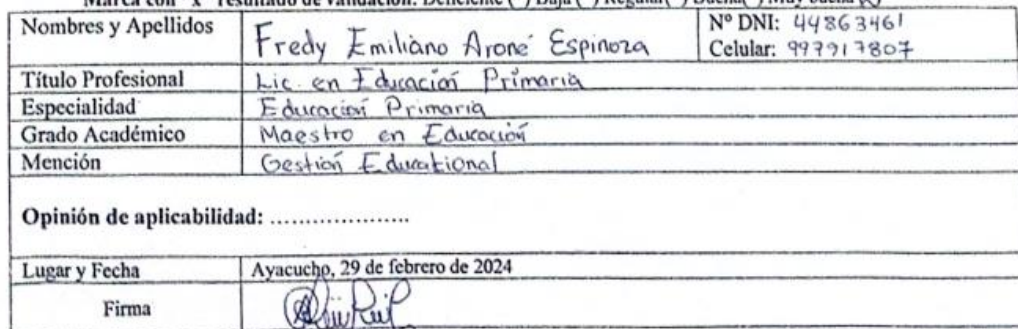 Marca con "x" resultado de validación: Deficiente ( ) Baja ( ) Regular( ) Buena( ) Muy buena (x)
Nombres y Apellidos Fredy Emiliano Aroné Espinoza
N° DNI: 44863461
Celular: 997917807
Título Profesional Lic. en Educación Primaria
Especialidad Educación Primaria
Grado Académico Maestro en Educación
Mención Gestión Educational
Opinión de aplicabilidad: ....................
Lugar y Fecha Ayacucho, 29 de febrero de 2024
Firma